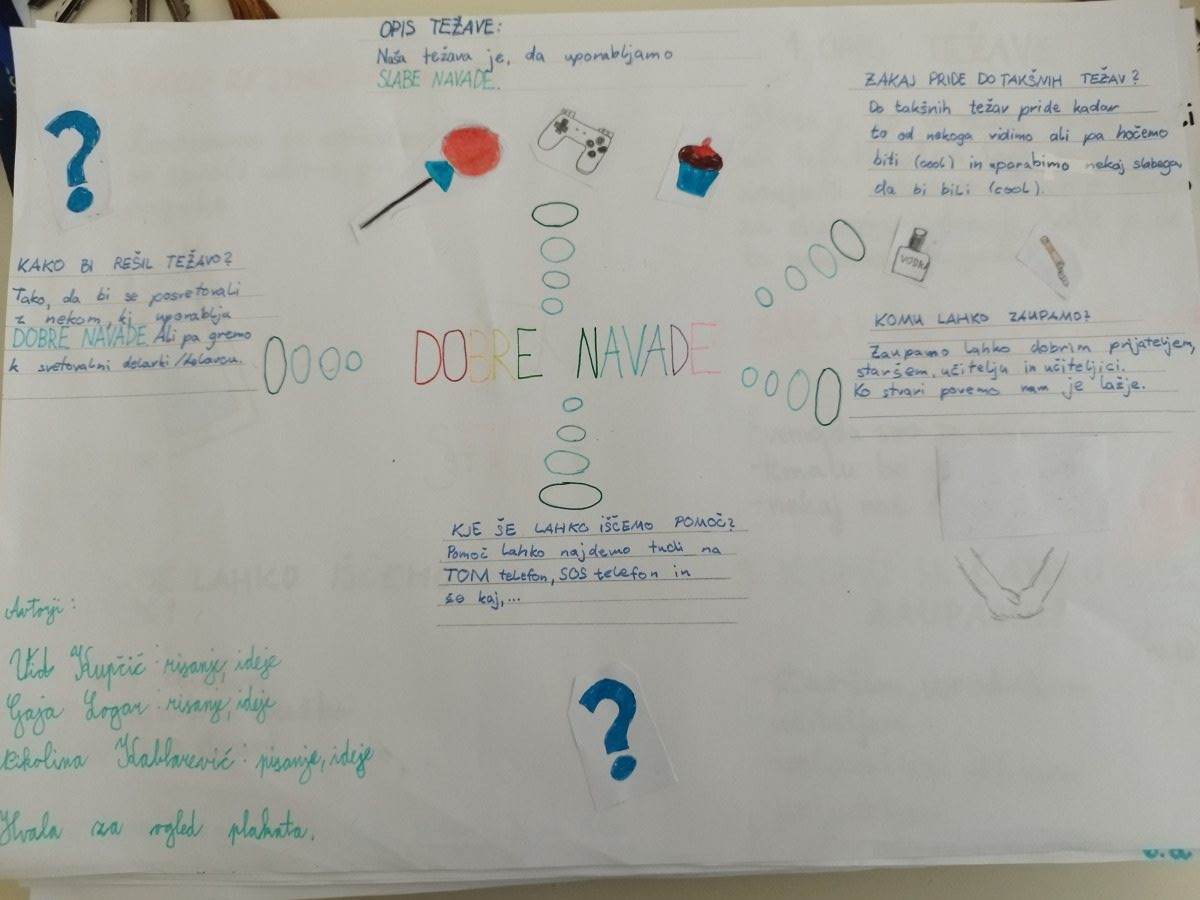 OPIS TEŽAVE:
Naša težava je, da uporabljamo
SLABE NAVADE.
ZAKAJ PRIDE DO TAKŠNIH TEŽAV?
Do takšnih težav pride kadar
to od nekoga vidimo ali pa hočemo
biti (cool) in uporabimo nekaj slabega,
da bi bili (cool).
VODKA
KAKO BI REŠIL TEŽAVO?
Tako, da bi se posvetovali
z nekom, ki uporablja
DOBRE NAVADE. Ali pa gremo
k svetovalni delavki/delavcu.
DOBRE NAVADE
KOMU LAHKO ZAUPAMO?
Zaupamo lahko dobrim prijateljem,
staršem, učitelju in učiteljici.
Ko stvari povemo nam je lažje.
KJE ŠE LAHKO IŠČEMO POMOČ?
Pomoč lahko najdemo tudi na
TOM telefon, SOS telefon in
še kaj,...
Avtorji:
Vid Kupčič: risanje, ideje
Gaja Logar: risanje, ideje
Nikolina Kablarević: pisanje, ideje
Hvala za ogled plakata.